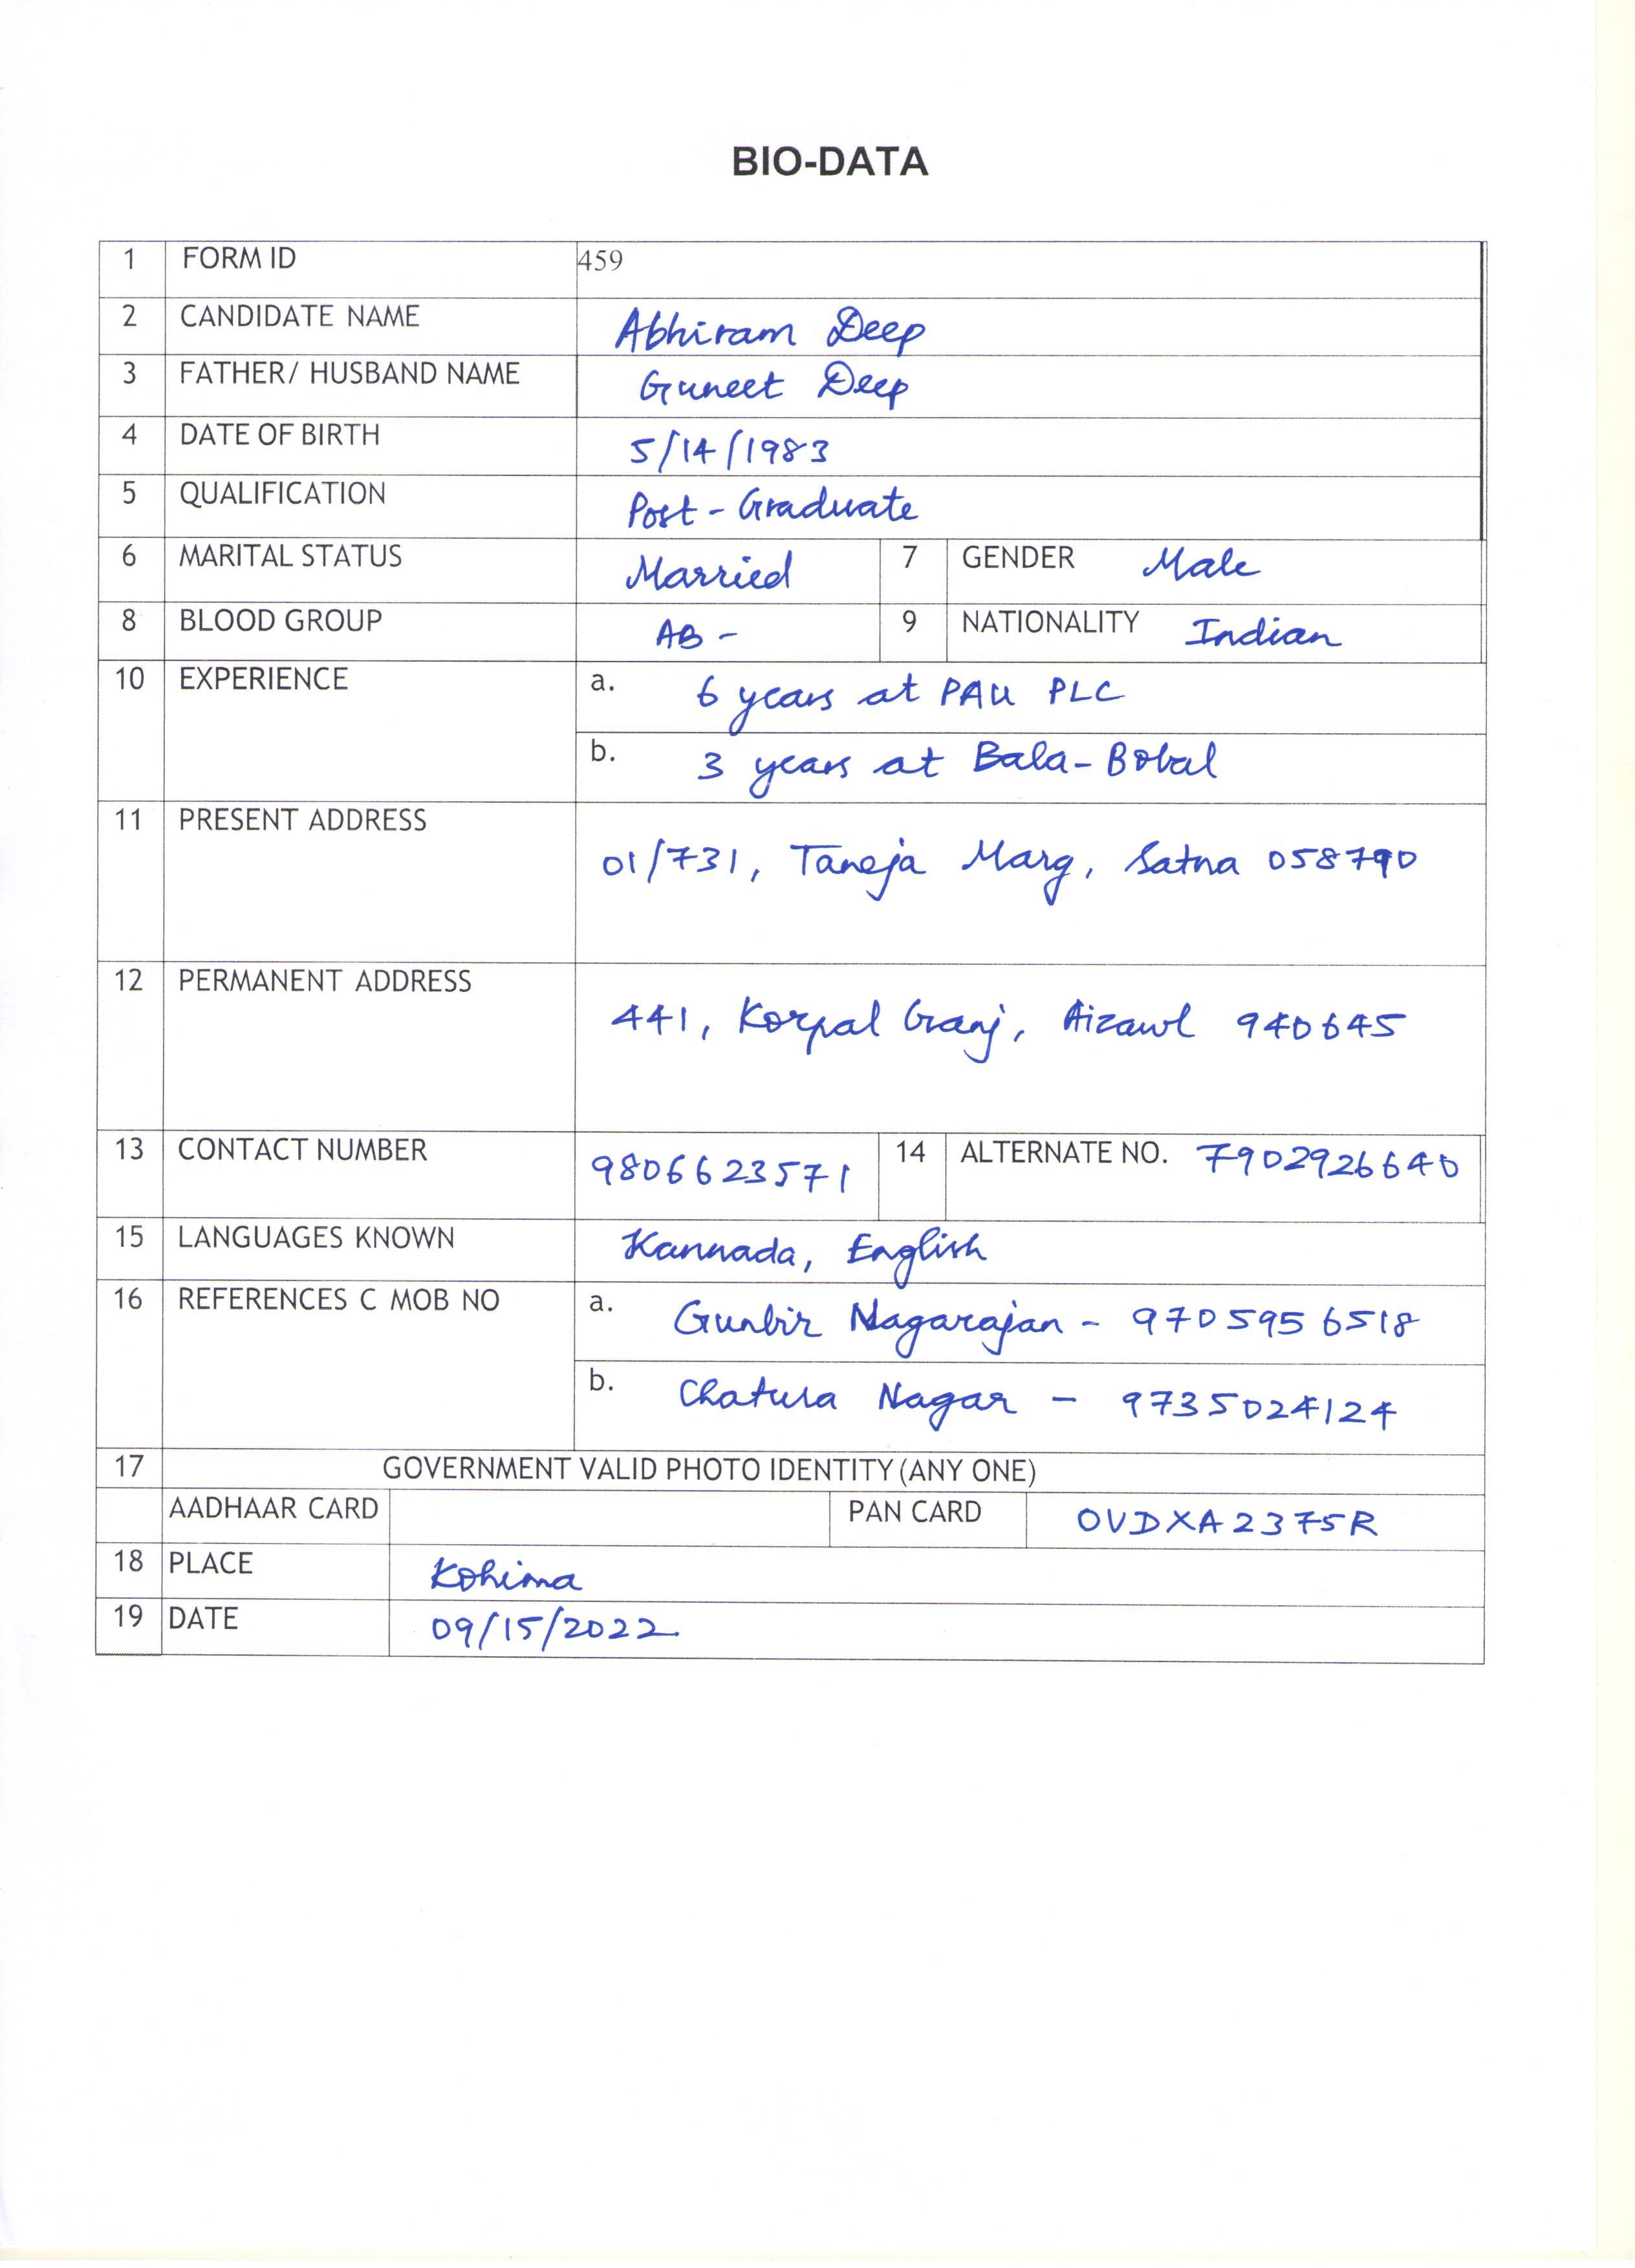 BIO-DATA
1 FORM ID 459
2 CANDIDATE NAME Abhiram Deep
3 FATHER/ HUSBAND NAME Guneet Deep
4 DATE OF BIRTH 5/14/1983
5 QUALIFICATION Post-Graduate
6 MARITAL STATUS Married 7 GENDER Male
8 BLOOD GROUP AB - 9 NATIONALITY Indian
10 EXPERIENCE a. 6 years at PAU PLC
b. 3 years at Bala-Bobal
11 PRESENT ADDRESS
01/731, Taneja Marg, Satna 058790
12 PERMANENT ADDRESS
441, Korpal Ganj, Aizawl 940645
13 CONTACT NUMBER 9806623571 14 ALTERNATE NO. 7902926640
15 LANGUAGES KNOWN Kannada, English
16 REFERENCES C MOB NO a. Gunbir Nagarajan - 9705956518
b. Chatura Nagar - 9735024124
17 GOVERNMENT VALID PHOTO IDENTITY (ANY ONE)
AADHAAR CARD PAN CARD OVDXA2375R
18 PLACE Kohima
19 DATE 09/15/2022